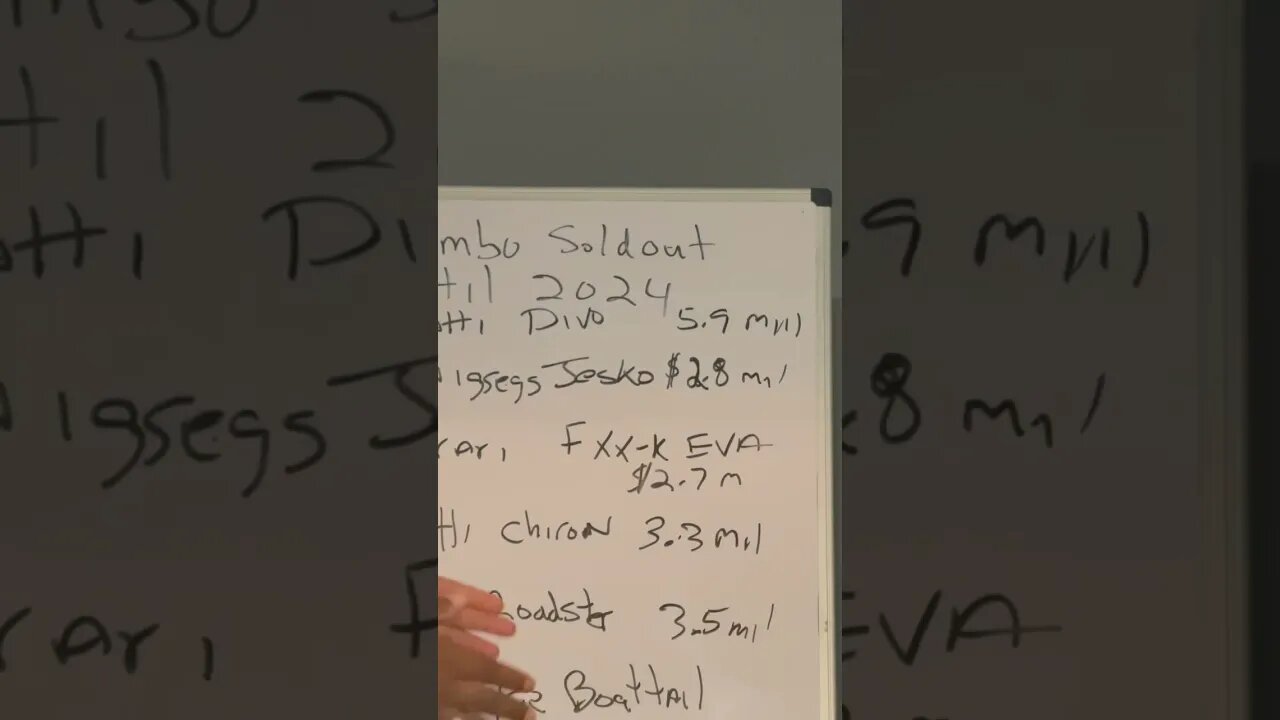 mbo Soldout
til 2024
tti Divo 5.9 mill
igsegs Jesko $2.8 mil
rari FXX-K EVA
$2.7 m
tti Chiron 3.3 mil
Roadster 3.5 mil
Boattail